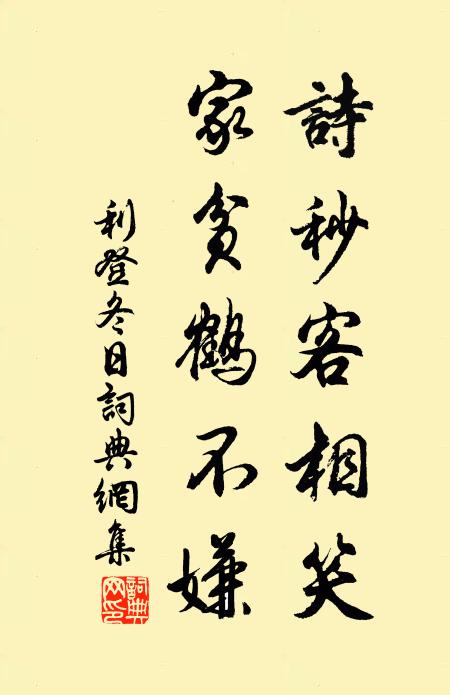 詩秒客相笑
家貧鶴不嫌
利登冬日詞典網集
詞典
网印